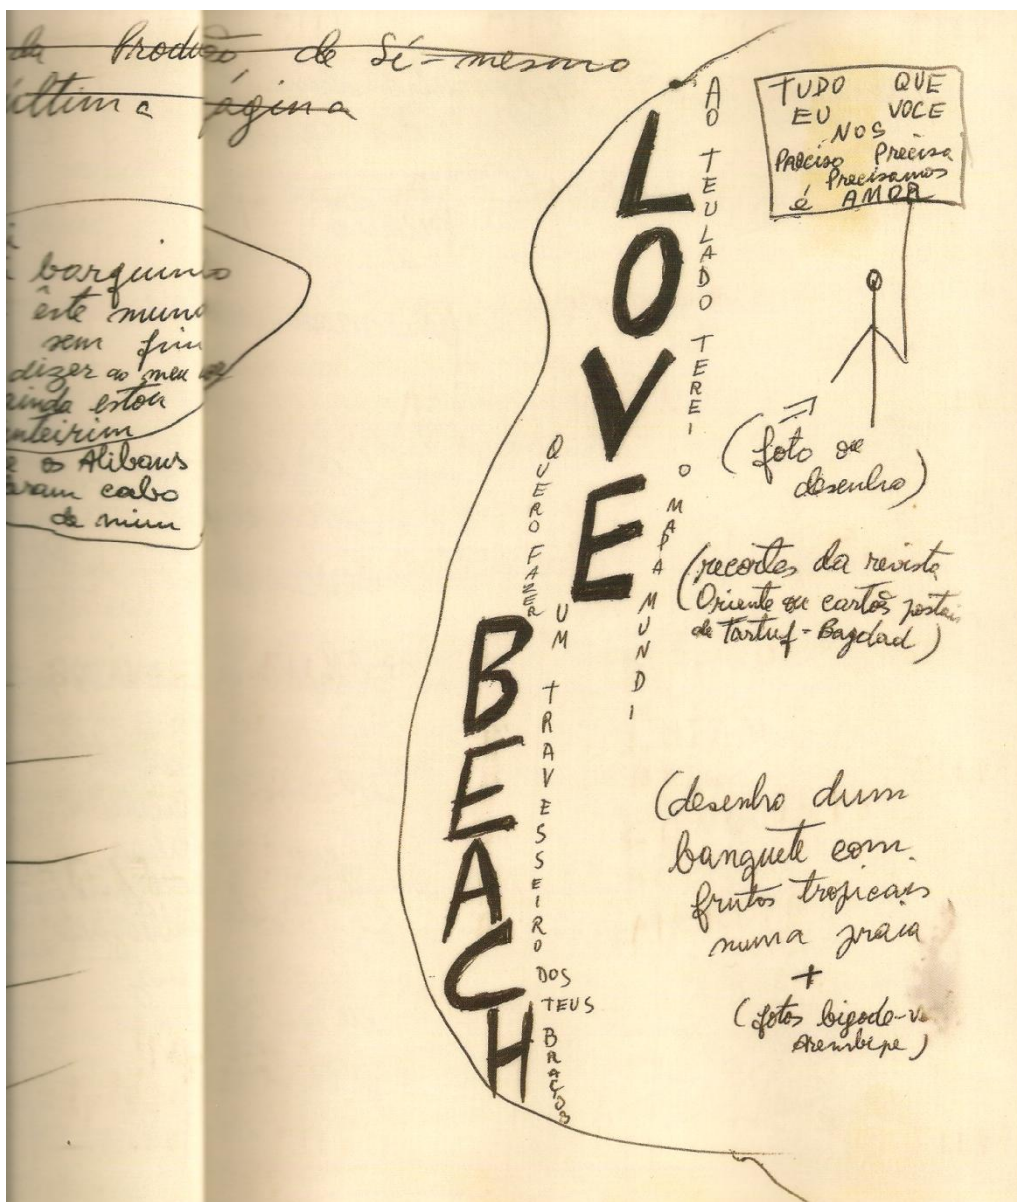 da Produção de Si-mesmo
última ágina
barquinho
êste mun
sem fim
dizer ao meu
ainda estou
nteirim
e os Alibans
aram cabo
de mim
LOVE
BEACH
AO TEU LADO TEREI O MAPA MUNDI
QUERO FAZER UM TRAVESSEIRO DOS TEUS BRAÇOS
TUDO QUE
EU VOCE
NOS
PRECISO Precisa
Precisamos
é AMOR
(foto ou
desenho)
(recortes da revista
Oriente ou cartões postais
de Tartuf-Bagdad)
(desenho dum
banquete com
frutos tropicais
numa praia
+
(fotos bigode-v
Arembepe)